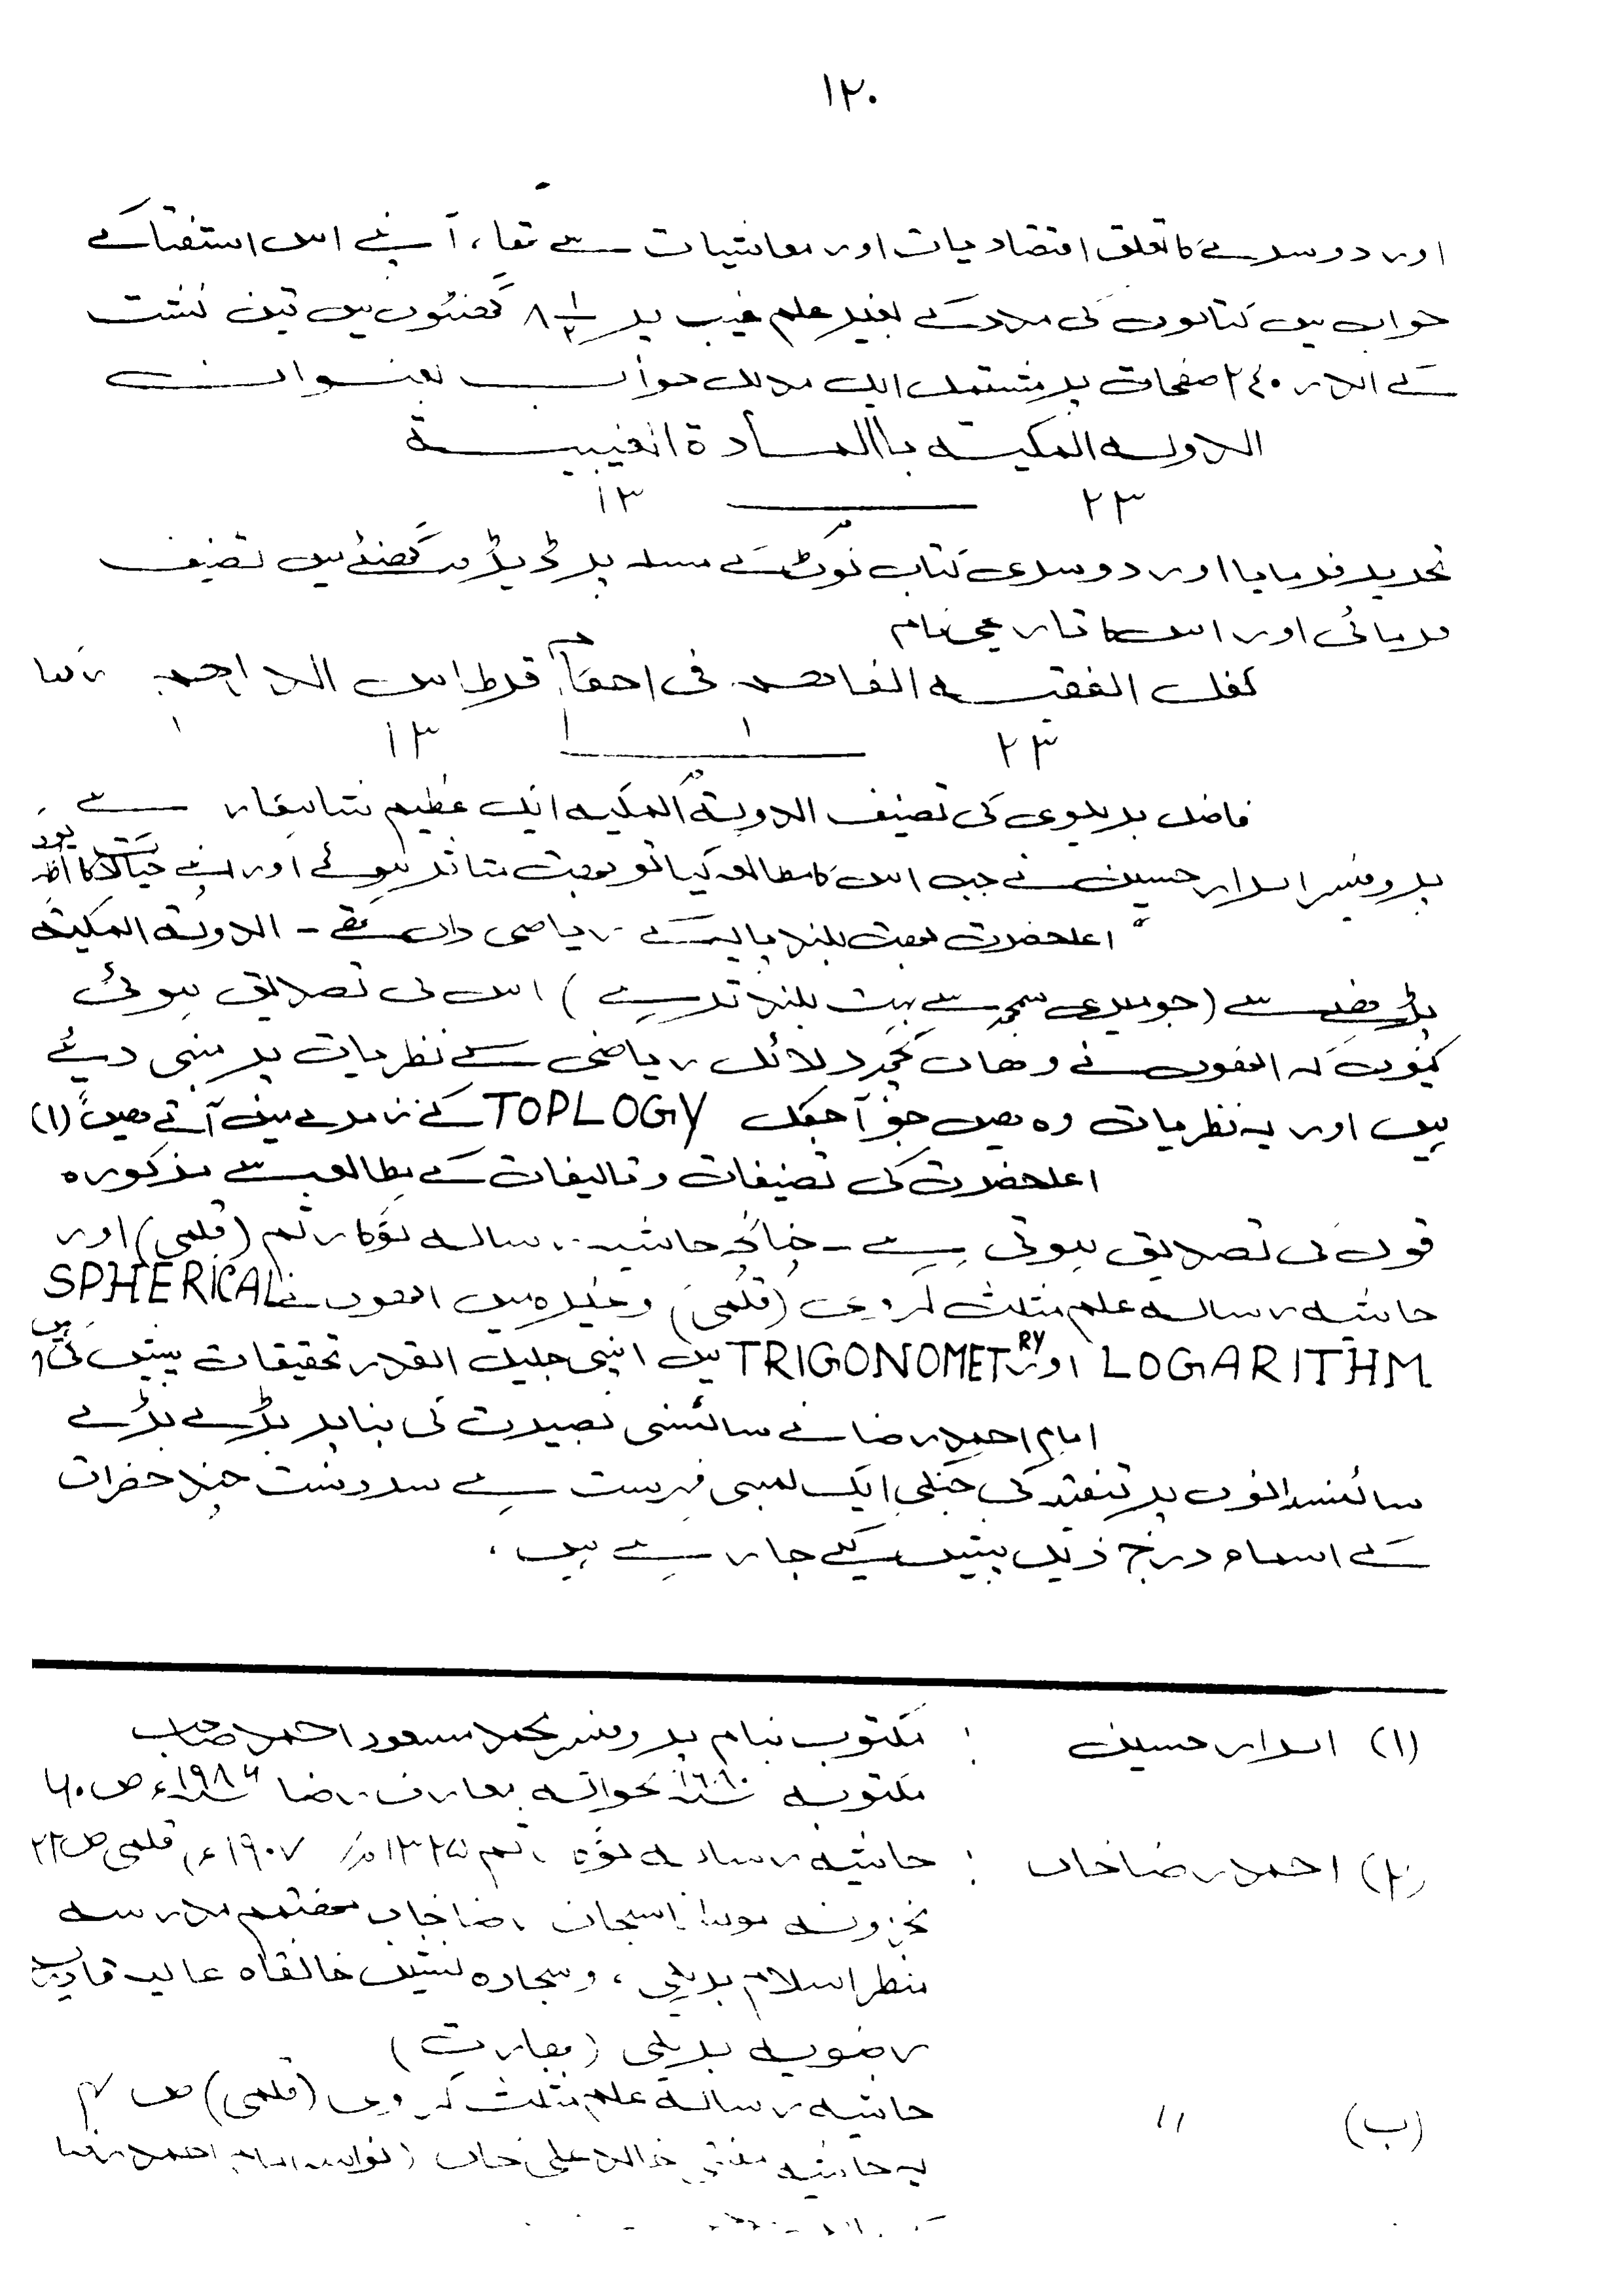 ۱۲۰
اور دوسرے کا تعلق اقتصادیات اور معاشیات سے تھا، آپنے اس استفتا کے
جواب میں کتابوں کی مدد کے بغیر علم غیب پر ۸ ۱/۲ گھنٹوں میں تین نشست
کے اندر ۲۴۰ صفحات پر مشتمل ایک مدلل جواب بعنوان
الدولہ المکیتہ باالمأدۃ الغیبیۃ
۲۳ ۱۳
تحریر فرمایا اور دوسری کتاب نوٹ کے مسلہ پر ڈیڑھ گھنٹے میں تصنیف
فرمائی اور اس کا تاریخی نام
کفل الفقیہ الفاھم فی احکام قرطاس الدراھم رکھا
۲۳ ۱۳
فاضل بریلوی کی تصنیف الدولتہ المکیہ ایک عظیم شاہکار ہے
پروفیسر ابرار حسین نے جب اس کا مطالعہ کیا تو بہت متاثر ہوئے اور اپنے خیالات کا اظہار
" اعلحضرت بہت بلند پایہ کے ریاضی داں تھے ـ الدولتہ المکیتہ
پڑھنے سے (جو میری سمجھ سے بہت بلند تر ہے) اس کی تصدیق ہوئی
کیوں کہ انھوں نے وھاں کچھ دلائل ریاضی کے نظریات پر مبنی دیئے
ہیں اور یہ نظریات وہ ہیں جو آجکل TOPLOGY کے زمرے میں آتے ہیں" (۱)
اعلحضرت کی تصنیفات و تالیفات کے مطالعہ سے مذکورہ
قول کی تصدیق ہوتی ہے ـ چنانچہ حاشیہ رسالہ لوگارثم (قلمی) اور
حاشیہ رسالہ علم مثلث کروی (قلمی) وغیرہ میں انھوں نے SPHERICAL
LOGARITHM اور TRIGONOMETRY میں اپنی جلیل القدر تحقیقات پیش کی ہیں
امام احمد رضا نے سائنسی بصیرت کی بنا پر بڑے بڑے
سائنسدانوں پر تنقید کی جنکی ایک لمبی فہرست ہے سردست چند حضرات
کے اسماء درج ذیل پیش کیے جا رہے ہیں ،
(۱) ابرار حسین : مکتوب بنام پروفیسر محمد مسعود احمد صاحب
مکتوبہ بحوالہ معارف رضا ۱۹۸۶ء ص ۶۰
احمد رضا خاں : حاشیہ رسالہ لوگارثم ۱۳۲۵ھ / ۱۹۰۷ء، قلمی ص ۲۲
مخزونہ مولانا سبحان رضا خاں مھتمم مدرسہ
منظر اسلام بریلی ، و سجادہ نشین خانقاہ عالیہ قادریہ
رضویہ بریلی (بھارت)
(ب) ״ حاشیہ رسالہ علم مثلث کروی (قلمی) ص ۴
یہ حاشیہ مفتی خالد علی خاں (نواسہ امام احمد رضا